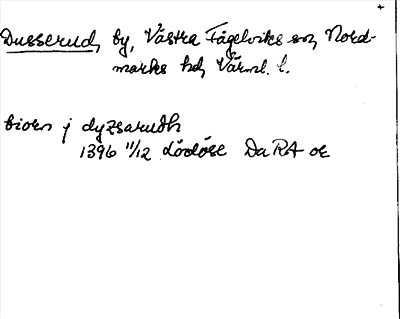 Dusserud, by, Västra Fågelviks sn, Nord-
marks hd, Värml. l.
biorn j dyzsarudh
1396 11/12 Lödöse DaRA or